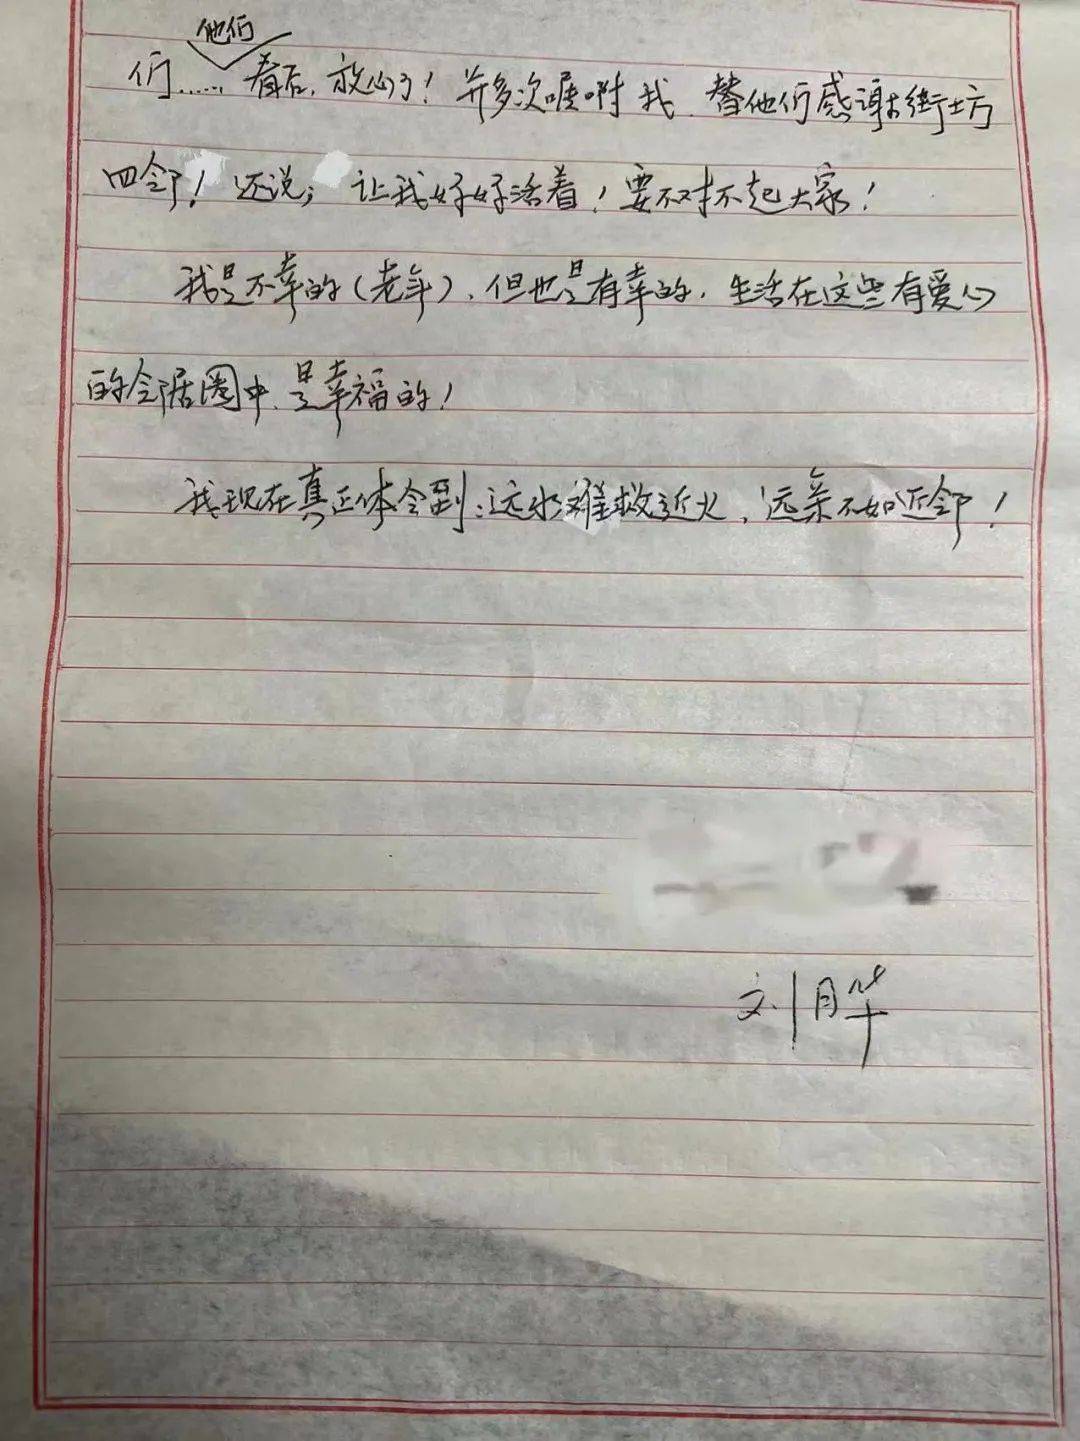 他们
们……看后，放心了！并多次嘱咐我，替他们感谢街坊
四邻！还说；让我好好活着！要不对不起大家！
我是不幸的（老年），但也是有幸的，生活在这些有爱心
的邻居圈中，是幸福的！
我现在真正体会到：远水难救近火，远亲不如近邻！
刘月华